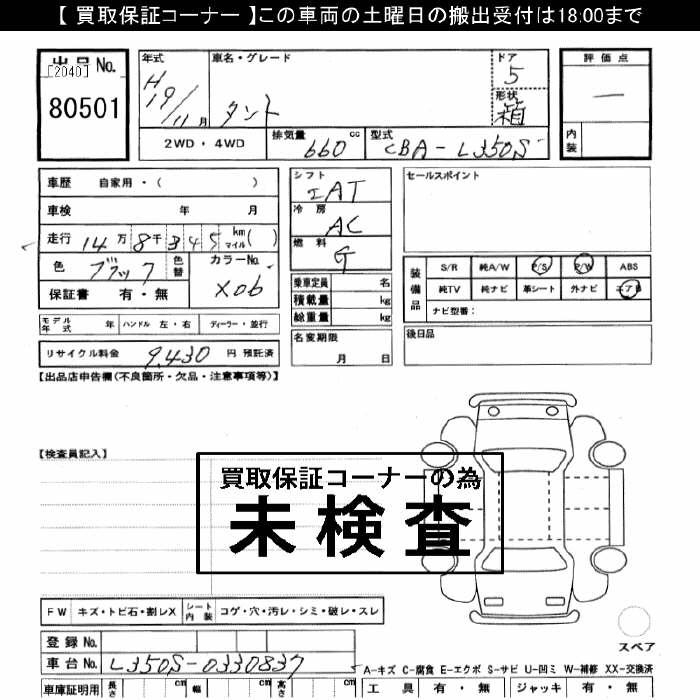 【 買取保証コーナー 】この車両の土曜日の搬出受付は18:00まで
出品No.
[2040]
80501
年式
H19/11月
車名・グレード
タント
ドア
5
形状
箱
評価点
一
内装
2WD・4WD
排気量
660 cc
型式
CBA-L350S
車歴 自家用・( )
車検 年 月
走行 14万8千345 km マイル( )
色 ブラック 色替
カラーNo.
X06
保証書 有・無
シフト
IAT
冷房
AC
燃料
G
乗車定員 名
積載量 kg
総重量 kg
セールスポイント
装備品
S/R 純A/W P/S P/W ABS
純TV 純ナビ 革シート 外ナビ エアB
ナビ型番:
モデル年式 年 ハンドル 左・右 ディーラー・並行
名変期限
月 日
後日品
リサイクル料金 9,430 円 預託済
【出品店申告欄(不良箇所・欠品・注意事項等)】
【検査員記入】
買取保証コーナーの為
未検査
FW キズ・トビ石・割レX シート内装 コゲ・穴・汚レ・シミ・破レ・スレ
スペア
登録No.
車台No. L350S-0330837
A-キズ C-腐食 E-エクボ S-サビ U-凹ミ W-補修 XX-交換済
車庫証明用 長さ cm 幅 cm 高さ cm
工具 有・無 ジャッキ 有・無